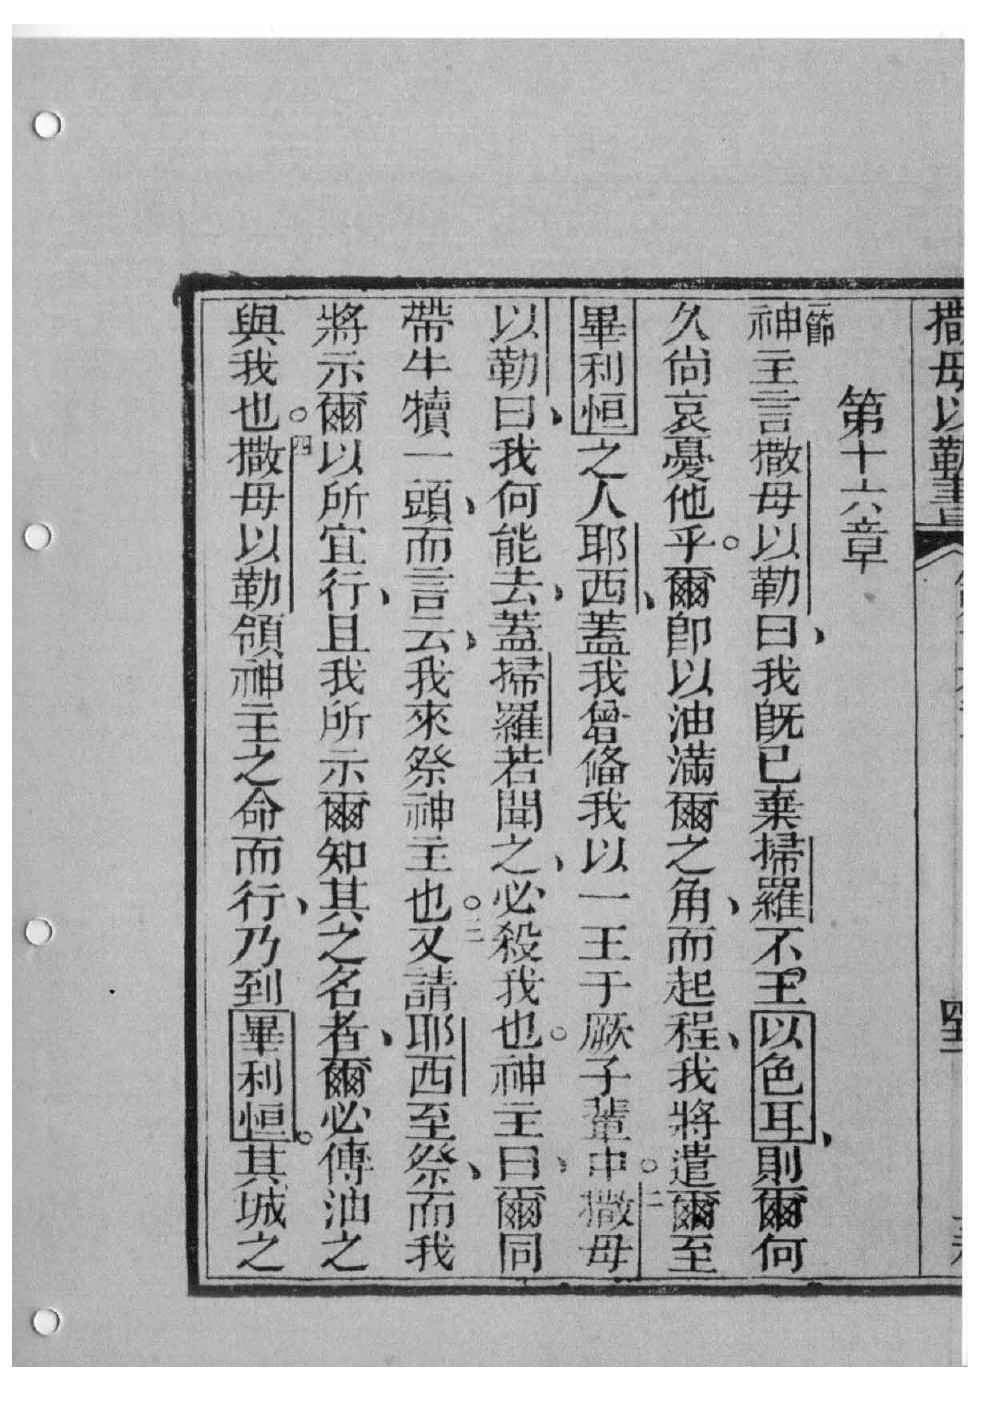 撒母以勒書
第十六章
一節神主言撒母以勒曰、我旣已棄掃羅不王以色耳、則爾何
久尙哀憂他乎。爾卽以油滿爾之角、而起程、我將遣爾至
畢利恒之人耶西、蓋我曾俻我以一王于厥子輩中。二撒母
以勒曰、我何能去、蓋掃羅若聞之、必殺我也。神主曰、爾同
帶牛犢一頭、而言云、我來祭神主也。三又請耶西至祭、而我
將示爾以所宜行、且我所示爾知其之名者、爾必傅油之
與我也。四撒母以勒領神主之命而行、乃到畢利恒。其城之